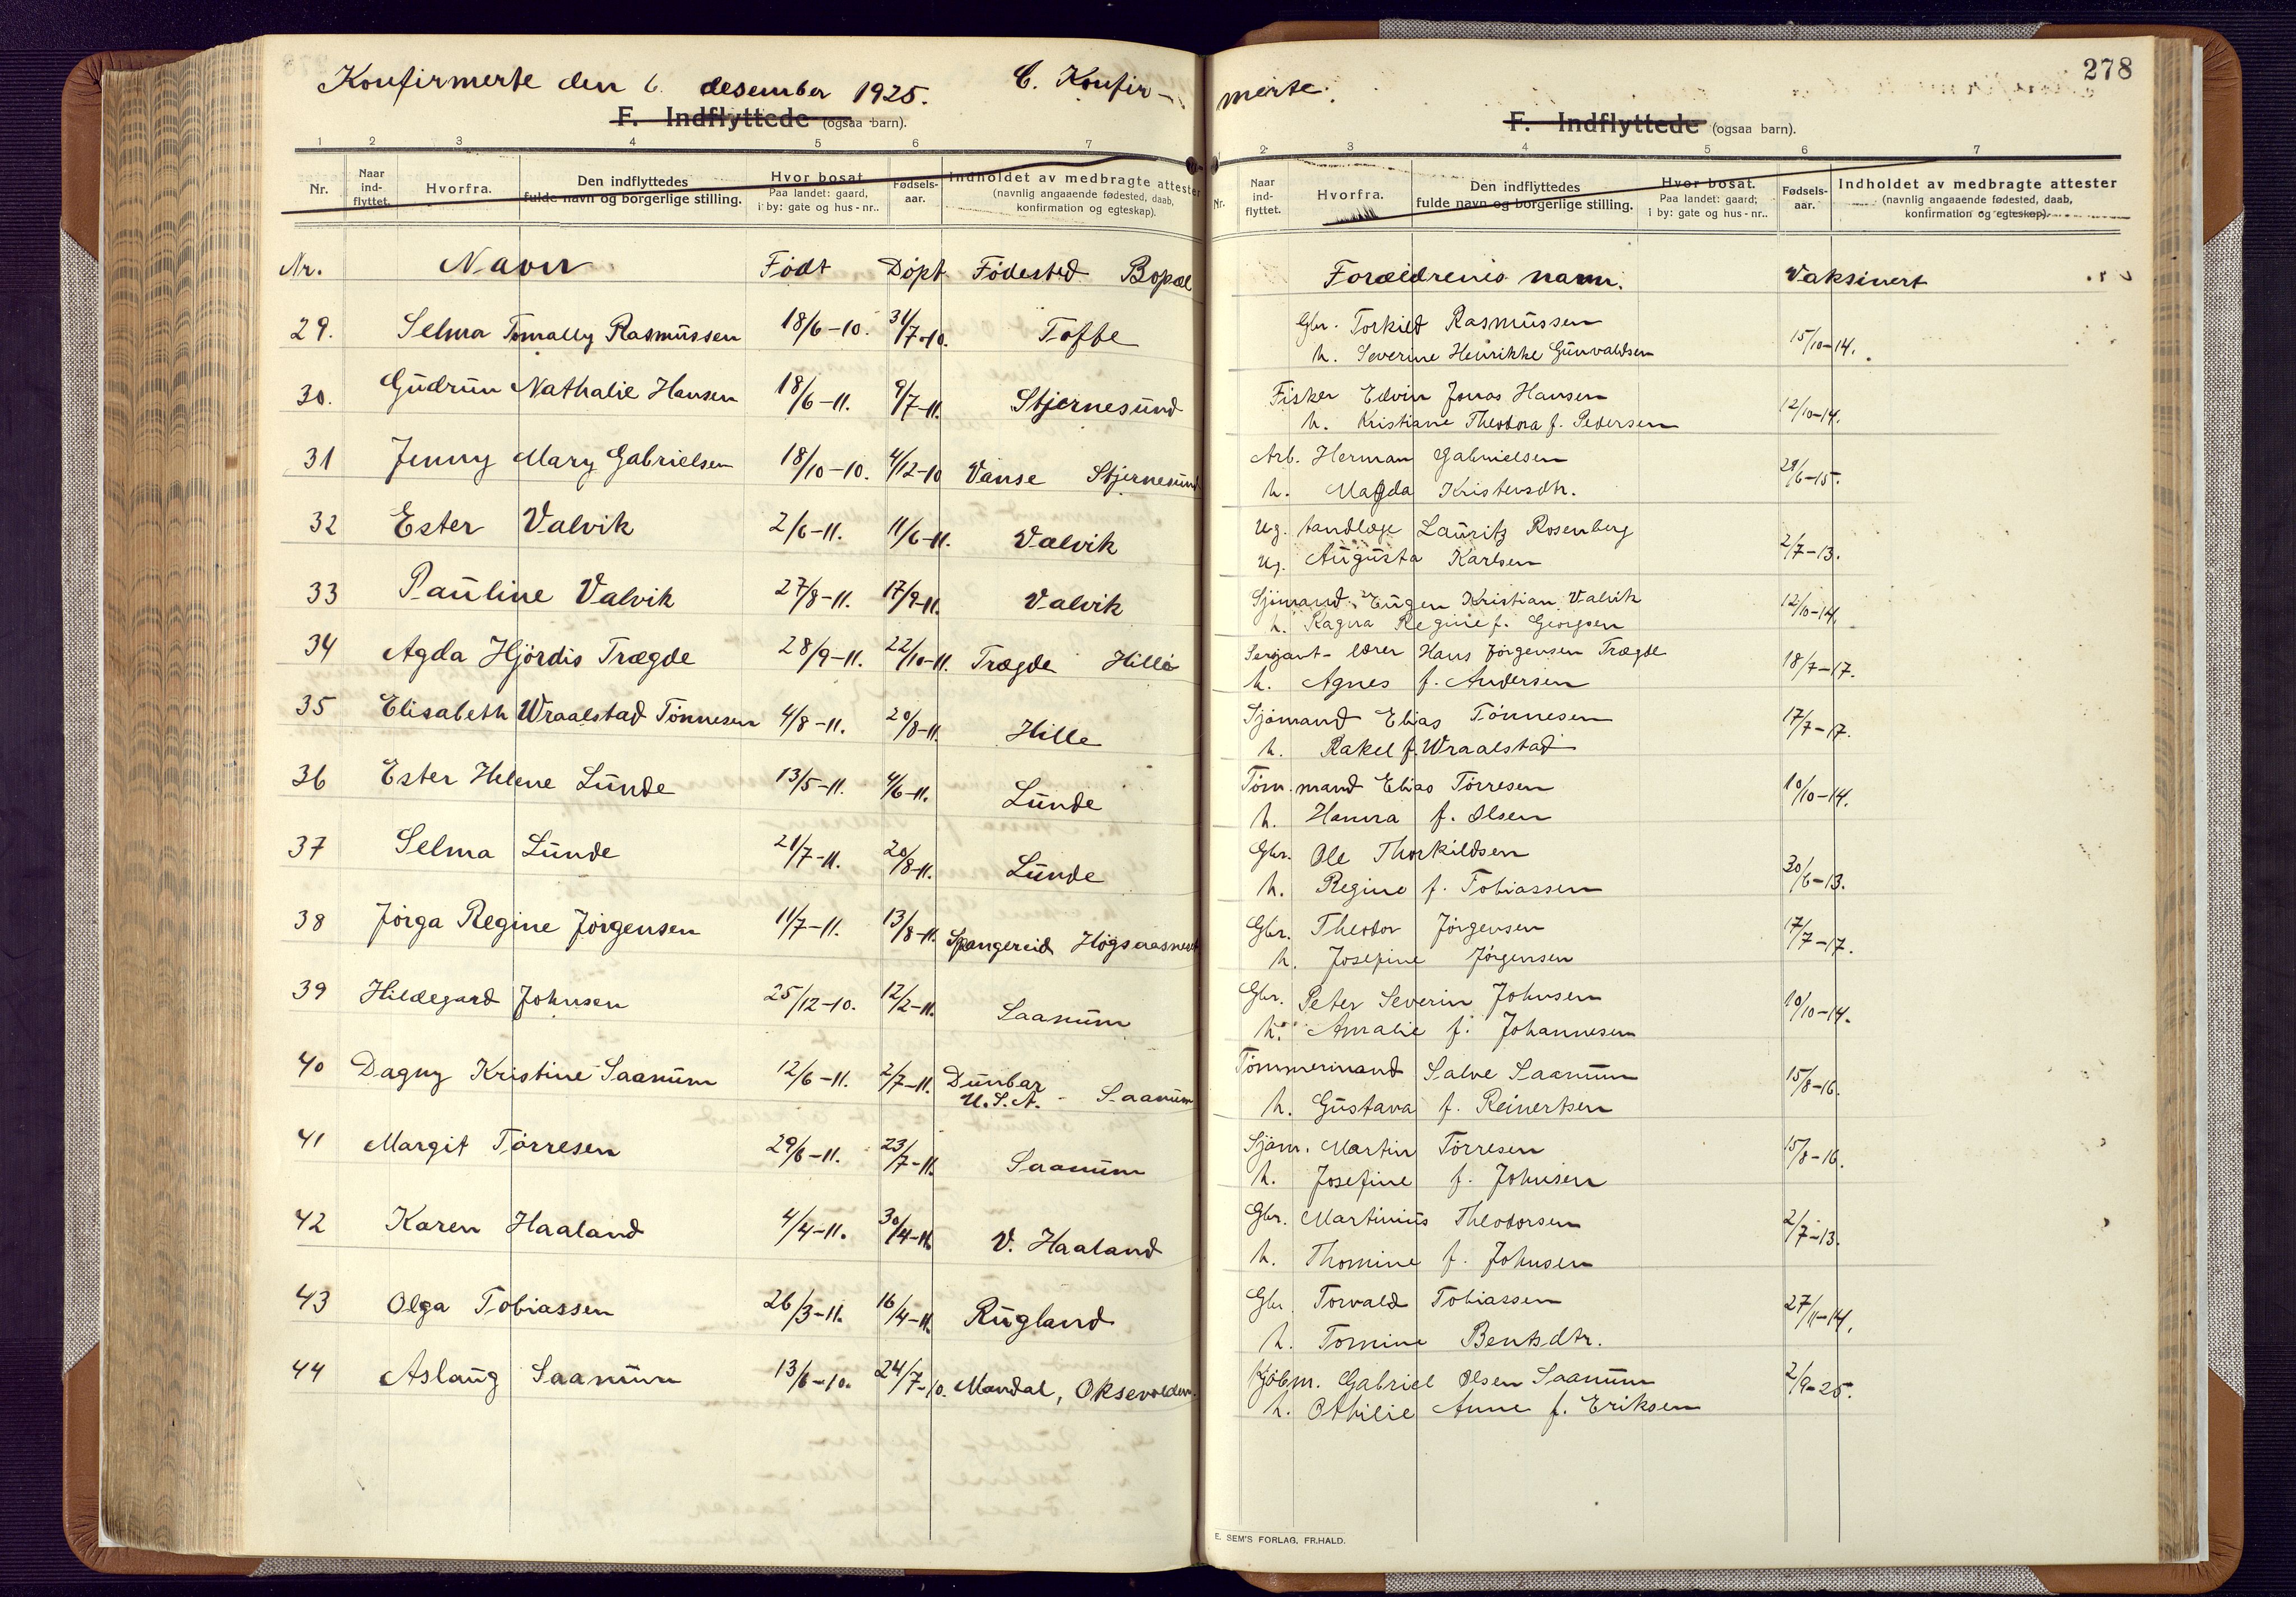 278
Konfirmerte den 6. desember 1925. C. Konfir-
merte.
F. Indflyttede (ogsaa barn).
F. Indflyttede (ogsaa barn).
1 2 3 4 5 6 7
2 3 4 5 6 7
Nr. Naar ind-flyttet. Hvorfra. Den indflyttedes fulde navn og borgerlige stilling. Hvor bosat. Paa landet: gaard, i by: gate og hus-nr.. Fødsels-aar. Indholdet av medbragte attester (navnlig angaaende fødested, daab, konfirmation og egteskap).
Nr. Naar ind-flyttet. Hvorfra. Den indflyttedes fulde navn og borgerlige stilling. Hvor bosat. Paa landet: gaard; i by: gate og hus-nr.. Fødsels-aar. Indholdet av medbragte attester (navnlig angaaende fødested, daab, konfirmation og egteskap).
Nr. Navn Født Døpt Fødested Bopæl Forældrenes navn. Vaksinert
29. Selma Tomally Rasmussen 18/6-10. 31/7-10. Tofte Gbr. Torkild Rasmussen 15/10-14.
h. Severine Henrikke Gunvaldsen
30. Gudrun Nathalie Hansen 18/6-11. 9/7-11. Stjernesund Fisker Edvin Jonas Hansen 12/10-14.
h. Kristiane Theodora f. Pedersen
31 Jenny Mary Gabrielsen 18/10-10. 4/12-10 Vanse Stjernesund Arb. Herman Gabrielsen 28/6-15.
h. Magda Kristensdtr.
32 Ester Valvik 2/6-11. 11/6-11. Valvik Ug. tandlæge Lauritz Rosenberg 2/7-13.
Ug. Augusta Karlsen
33 Pauline Valvik 27/8-11. 17/9-11. Valvik Sjømand Eugen Kristian Valvik 12/10-14.
h. Ragna Regine f. Georgsen
34 Agda Hjørdis Trægde 28/9-11. 22/10-11. Trægde Hille Serjant-lærer Hans Jørgensen Trægde 18/7-17.
h. Agnes f. Andersen
35 Elisabeth Wraalstad Tønnesen 4/8-11. 20/8-11. Hille Sjømand Elias Tønnesen 17/7-17.
h. Rakel f. Wraalstad
36 Ester Helene Lunde 13/5-11. 4/6-11. Lunde Tøm.mand Elias Tørresen 10/10-14.
h. Hanna f. Olsen
37 Selma Lunde 21/7-11. 20/8-11. Lunde Gbr. Ole Thorkildsen 30/6-13.
h. Regine f. Tobiassen
38 Jørga Regine Jørgensen 11/7-11. 13/8-11. Spangereid Høgsaasnest Gbr. Theodor Jørgensen 17/7-17.
h. Josefine Jørgensen
39 Hildegard Johnsen 25/12-10. 12/2-11. Saanum Gbr. Peter Severin Johnsen 10/10-14.
h. Amalie f. Johannesen
40 Dagny Kristine Saanum 12/6-11. 2/7-11. Dunbar U.S.A. - Saanum Tømmermand Salve Saanum 15/8-16.
h. Gustava f. Reinertsen
41 Margit Tørresen 29/6-11. 23/7-11. Saanum Sjøm. Martin Tørresen 15/8-16.
h. Josefine f. Johnsen
42 Karen Haaland 4/4-11. 30/4-11. V. Haaland Gbr. Martinius Theodorsen 2/7-13.
h. Thomine f. Johnsen
43 Olga Tobiassen 26/3-11. 16/4-11. Rugland Gbr. Torvald Tobiassen 27/11-14.
h. Tomine Bentsdtr.
44 Aslaug Saanum 13/6-10. 24/7-10. Mandal, Oksevolden. Kjøbm. Gabriel Olsen Saanum 2/9-25.
h. Othilie Anne f. Eriksen
E. SEM'S FORLAG, FR.HALD.